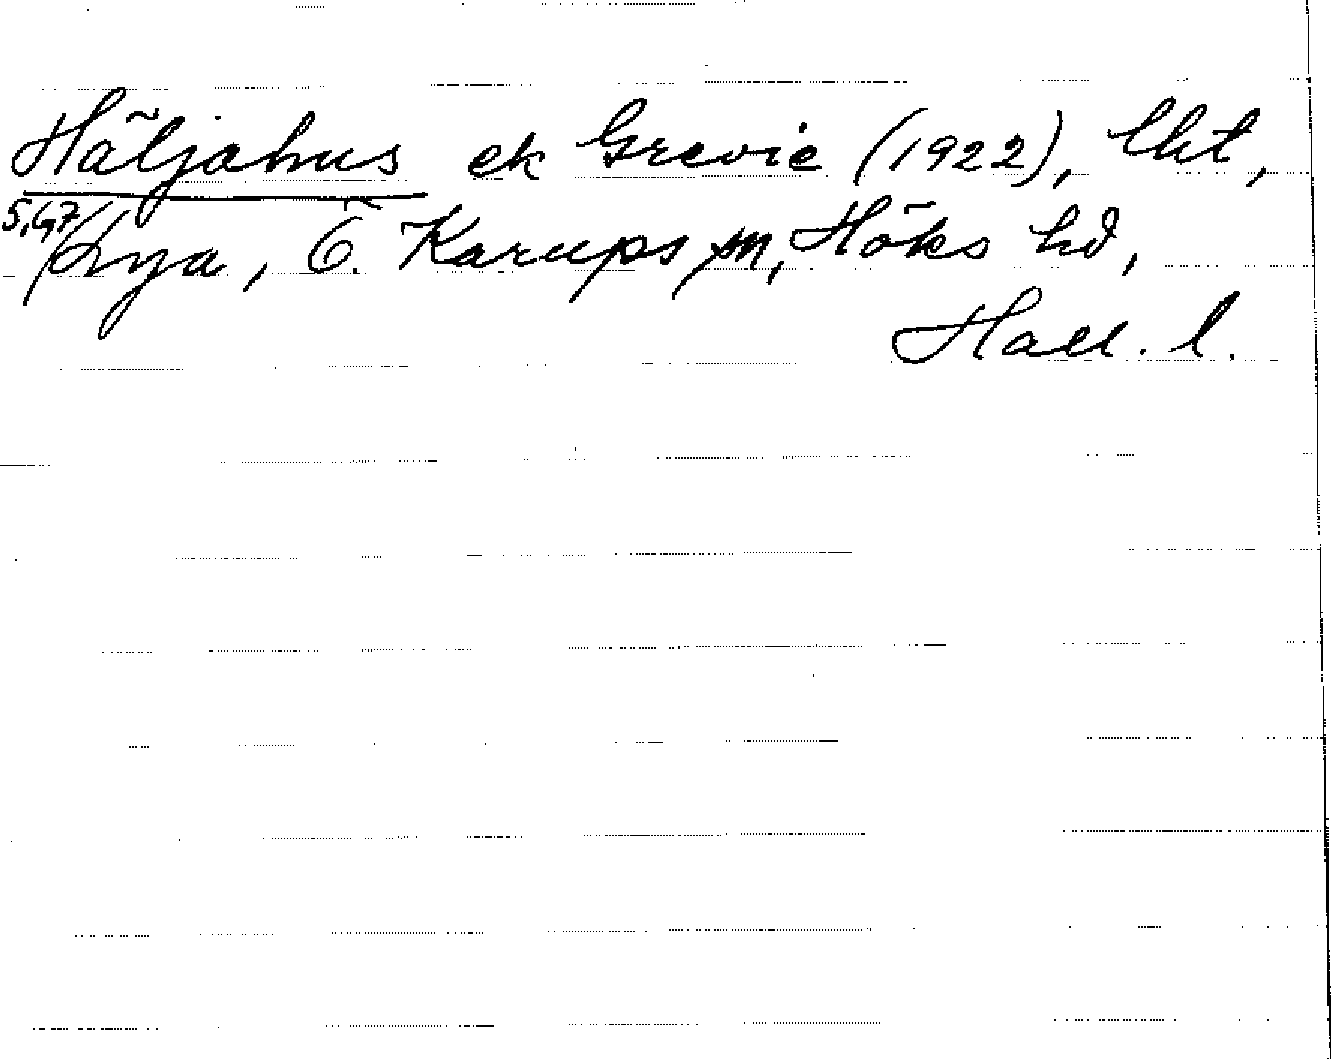 Häljahus ek Grevie (1922), lht,
5,67/ Lya, Ö. Karups sn, Höks hd,
Hall. l.